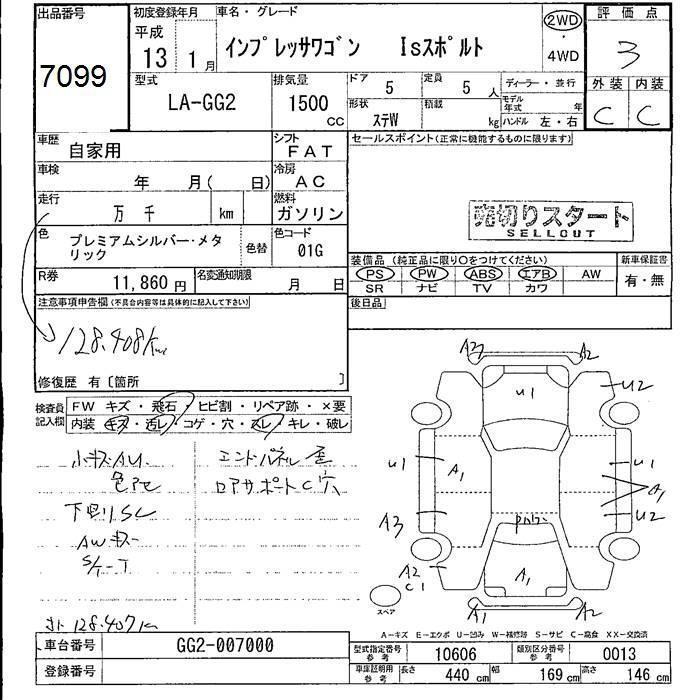 出品番号
7099
初度登録年月
平成
13年 1月
車名・グレード
インプレッサワゴン Isスポルト
2WD
・
4WD
評価点
3
外装 内装
C C
型式
LA-GG2
排気量
1500
CC
ドア
5
定員
5人
形状
ステW
積載
kg
ディーラー・並行
モデル年式 年
ハンドル 左・右
車歴
自家用
シフト
FAT
車検
年 月( 日)
冷房
AC
走行
万 千 km
燃料
ガソリン
色
プレミアムシルバー・メタリック
色替
色コード
01G
R券
11,860円
名変通知期限
月 日
セールスポイント(正常に機能するものに限ります)
売切りスタート
SELLOUT
装備品(純正品に限り○をつけてください)
PS PW ABS エアB AW
SR ナビ TV カワ
新車保証書
有・無
後日品
注意事項申告欄(不具合内容等は具体的に記入して下さい)
128,408km
修復歴 有〔箇所 〕
検査員記入欄
FW キズ・飛石・ヒビ割・リペア跡・×要
内装 キズ・汚レ・コゲ・穴・スレ・キレ・破レ
小キズAU
色アセ
下回りSC
AWキズ
エンドパネル
ロアサポートC穴
128.407k
A2 A2
U1
U2
U1
A1
U1
A1
U2
A3
A2
C1
A1
A1
A2
スペア
A-キズ E-エクボ U-凹み W-補修跡 S-サビ C-腐食 XX-交換済
車台番号
GG2-007000
登録番号
型式指定番号
参考
10606
類別区分番号
参考
0013
車庫証明用
参考
長さ 440cm 幅 169cm 高さ 146cm